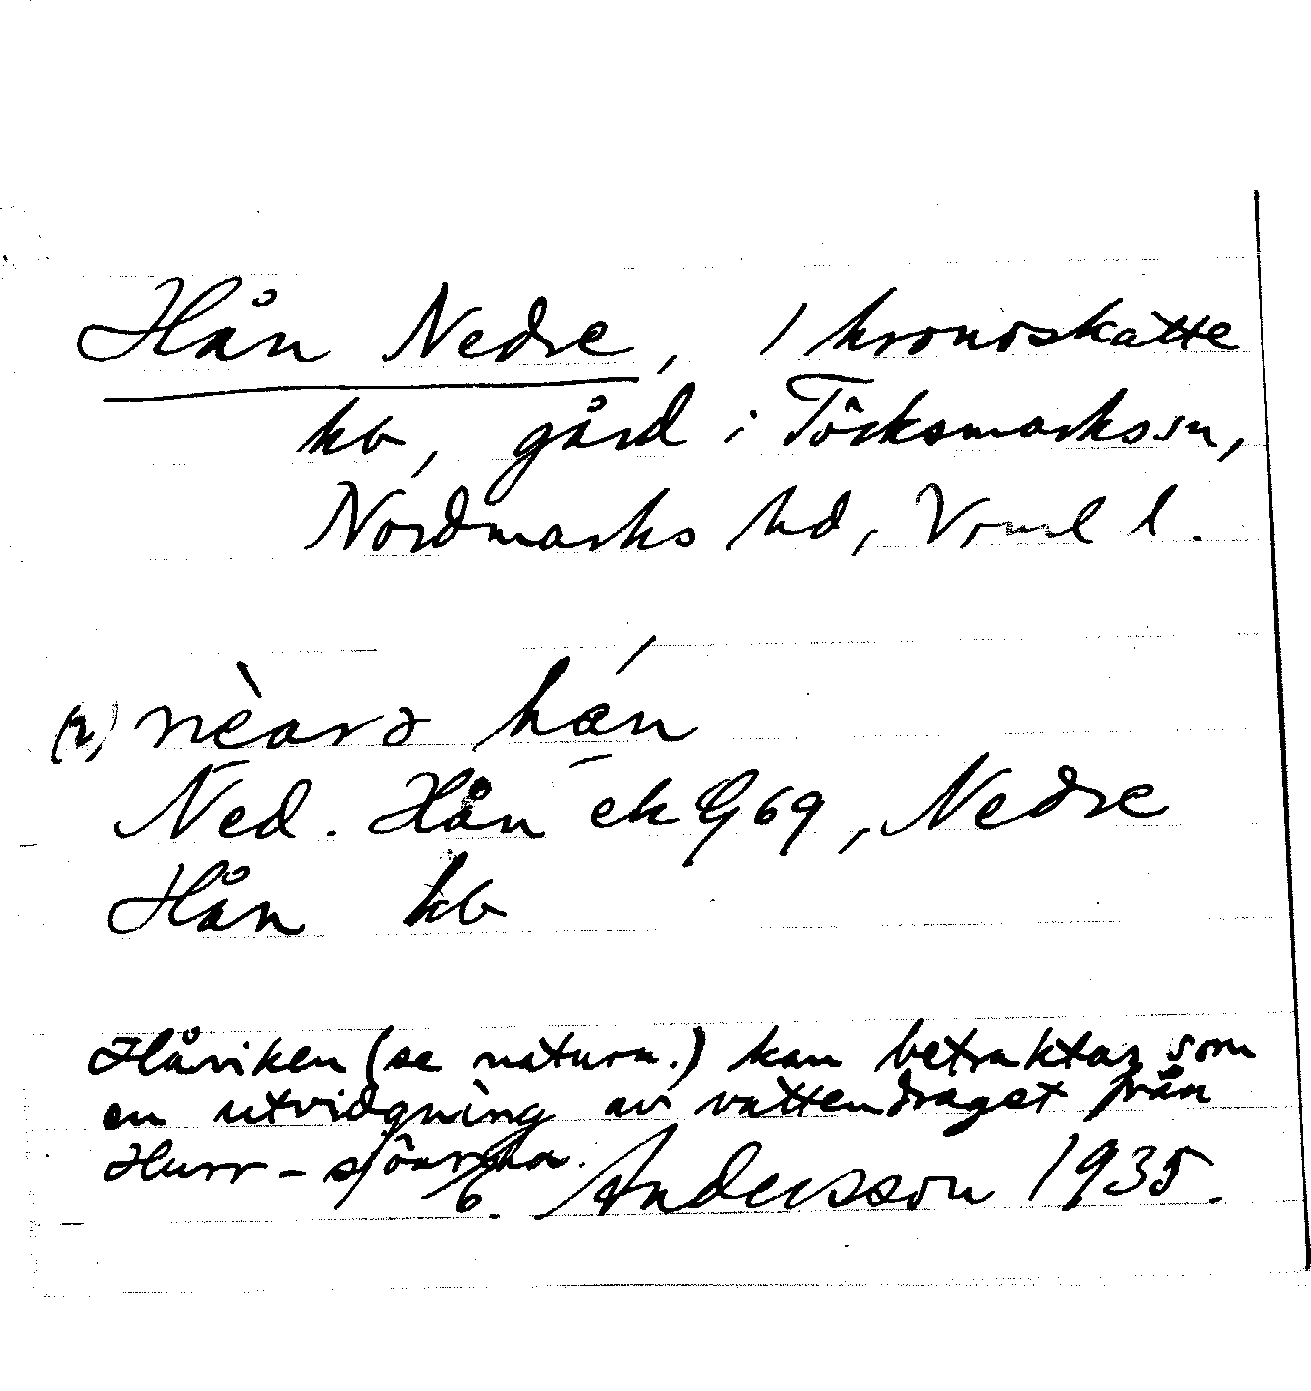 Hån Nedre, 1 kronoskatte
kb, gård i Töcksmarks sn,
Nordmarks hd, Vrml l.
(2) nèarə hæ̠n
Ned. Hån ek G69, Nedre
Hån kb
Håviken (se naturn.) kan betraktas som
en utvidgning av vattendraget från
Hurr-sjöarna.
E. Andersson 1935.